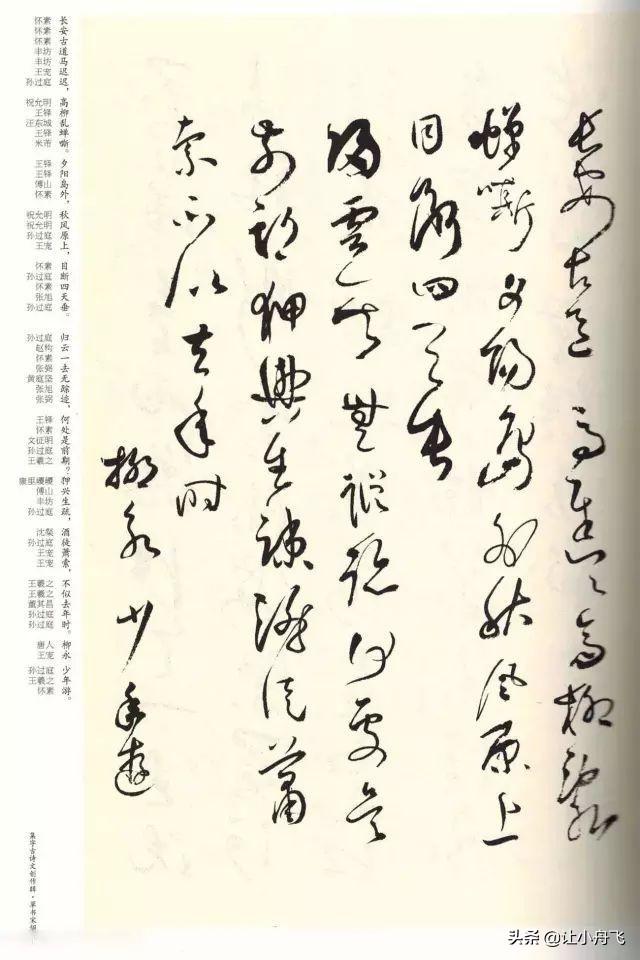 長安古道馬遲遲高柳亂
蟬嘶夕陽島外秋風原上
目斷四天垂
歸雲一去無蹤跡何處是
前期狎興生疎酒徒蕭
索不似去年時
柳永少年遊
怀素 长
怀素 安
怀素 古
丰坊 道
丰坊 马
王宠 迟
孙过庭 迟，
祝允明 高
王铎 柳
汪东城 乱
王铎 蝉
米芾 嘶。
王铎 夕
王铎 阳
傅山 岛
怀素 外，
祝允明 秋
祝允明 风
孙过庭 原
王宠 上，
怀素 目
孙过庭 断
怀素 四
张旭 天
孙过庭 垂。
孙过庭 归
赵构 云
怀素 一
张弼 去
黄庭坚 无
张旭 踪
张弼 迹，
王铎 何
怀素 处
文征明 是
孙过庭 前
王羲之 期？
康里巎巎 狎
傅山 兴
丰坊 生
孙过庭 疏，
沈粲 酒
孙过庭 徒
王宠 萧
王宠 索，
王羲之 不
王羲之 似
董其昌 去
孙过庭 年
孙过庭 时。
唐人 柳
王宠 永
孙过庭 少
王羲之 年
怀素 游。
集字古诗文创作辑·草书宋词
头条 @让小舟飞